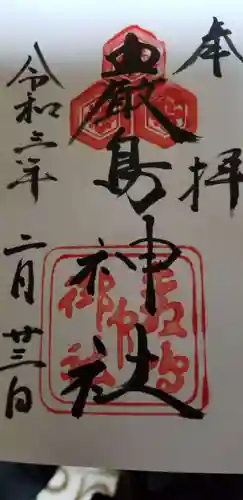 奉拝
嚴島神社
令和二年
二月廿三日